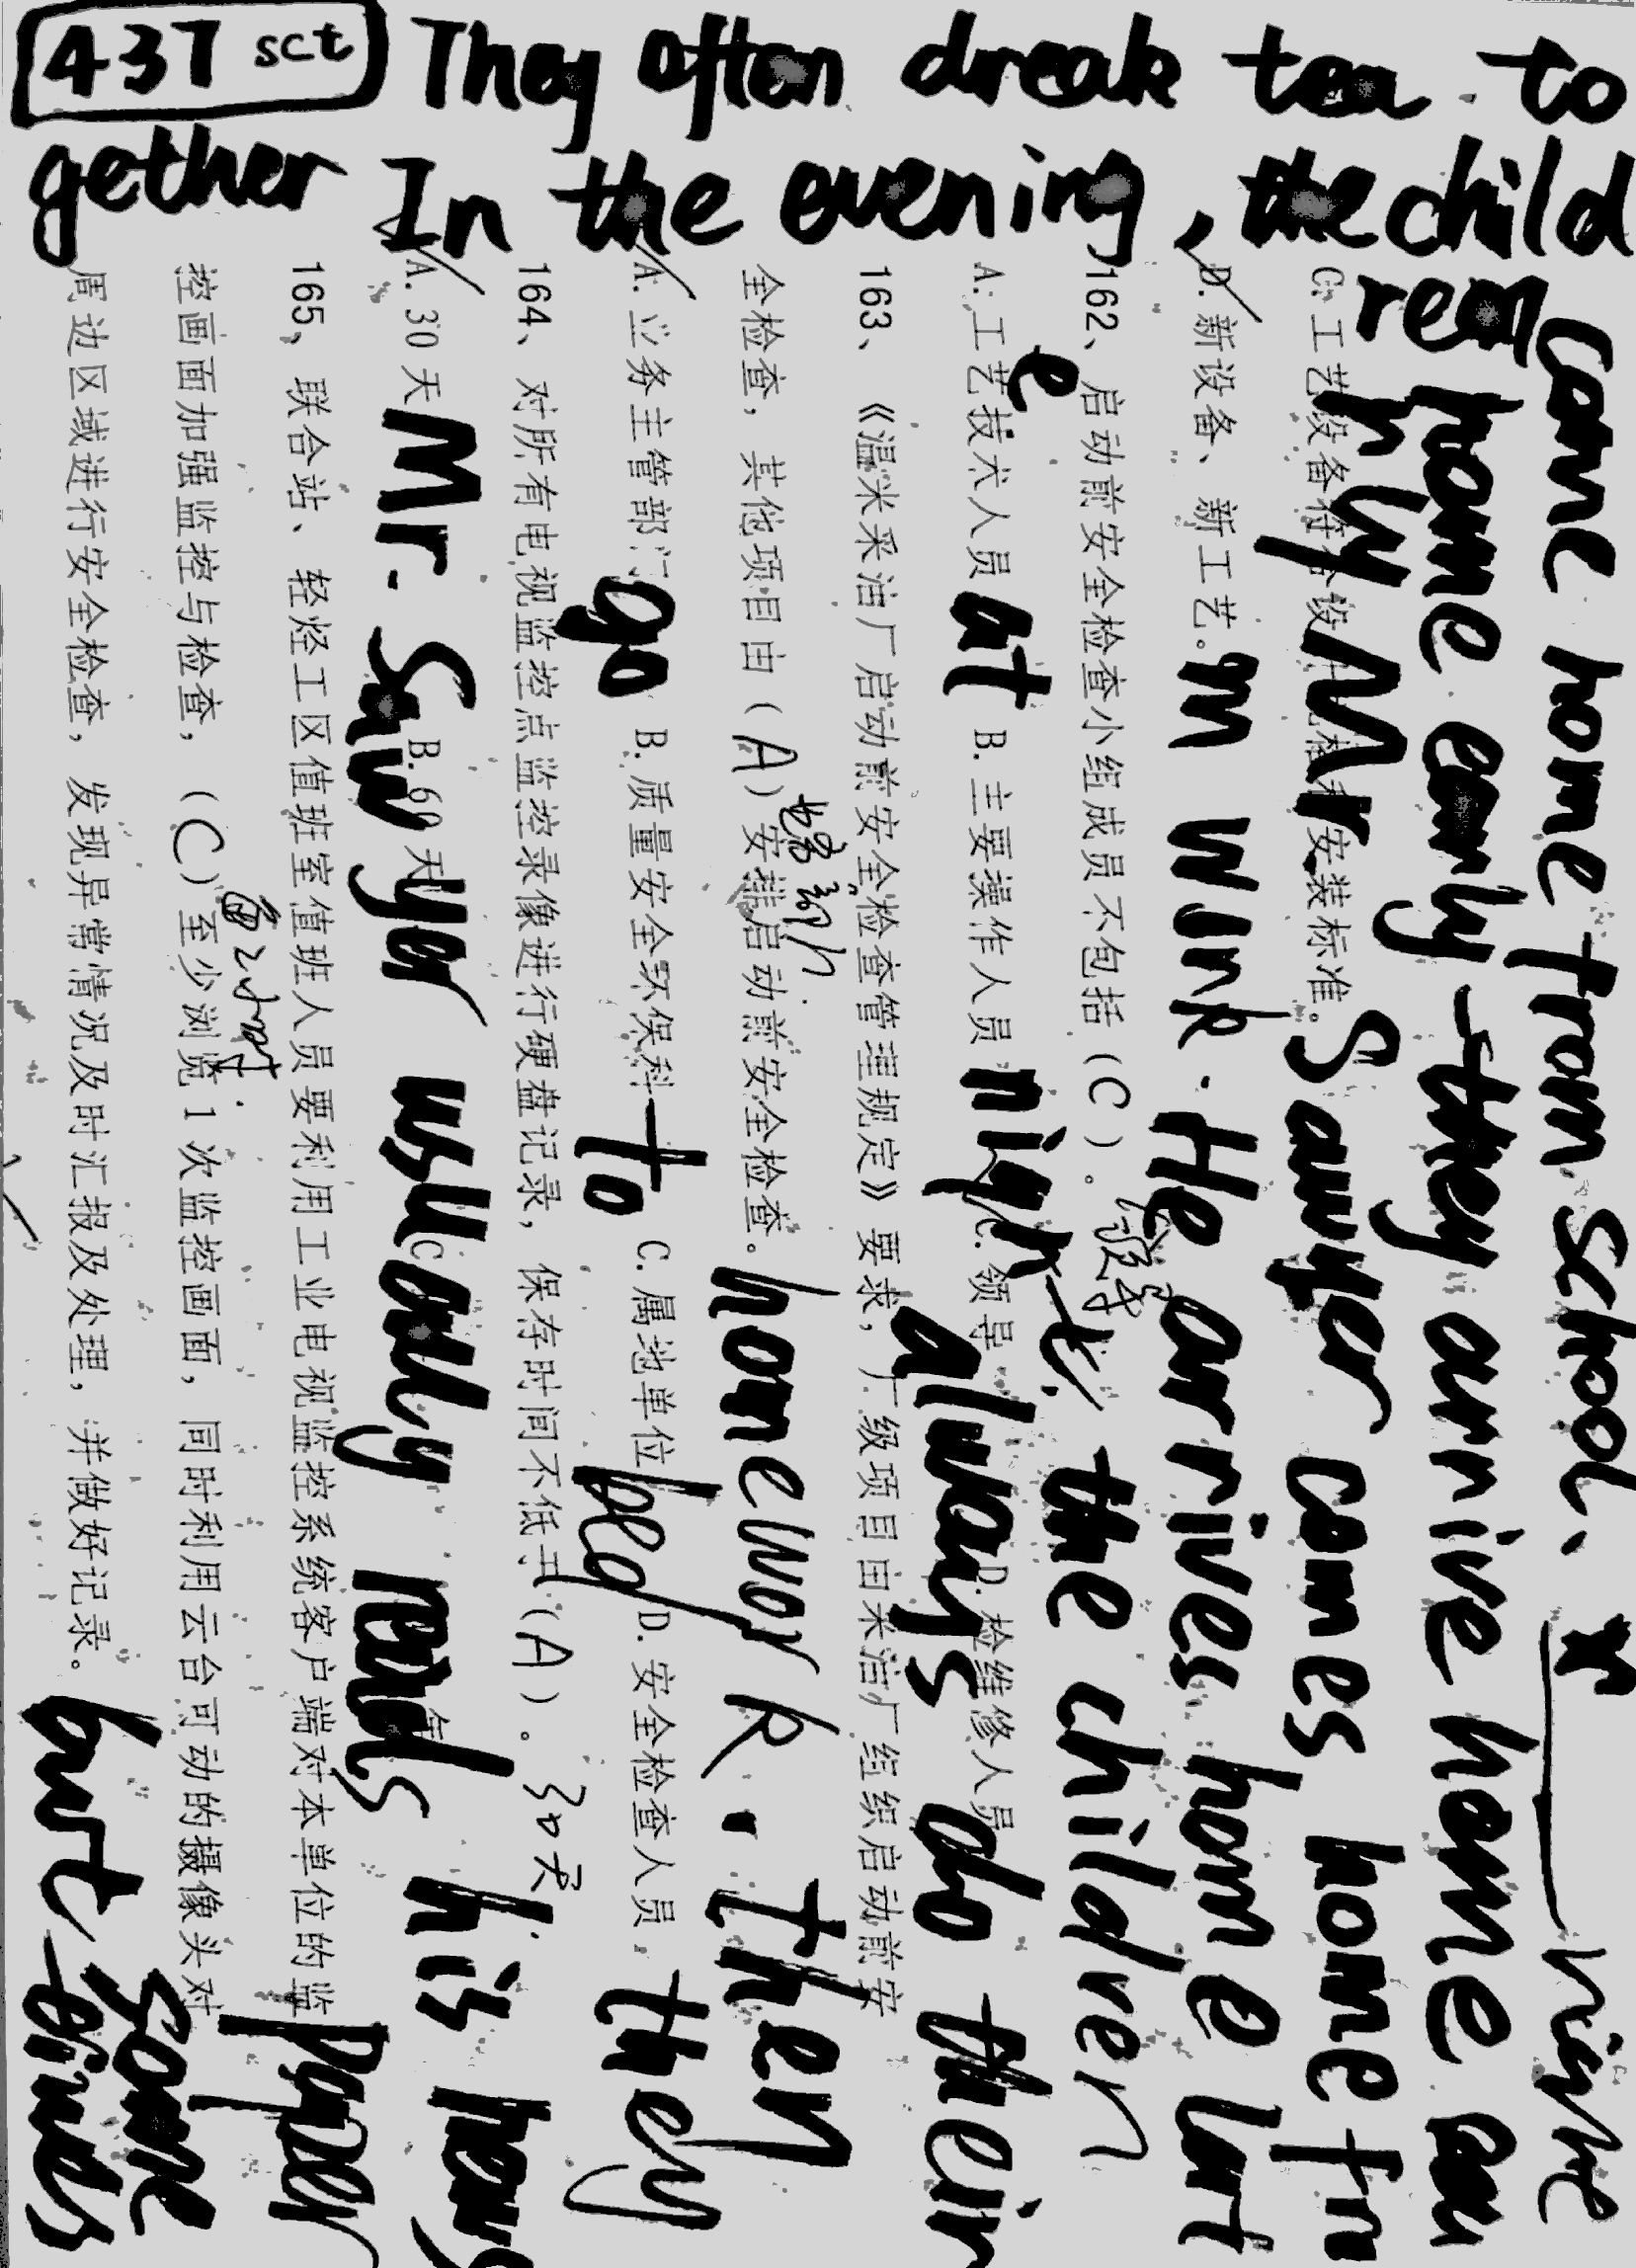 437 sct They often dreak tea to
gether In the evening, the child
ren
come home from school.
home early they arrive home
e h ly Mr. Sawyer comes home
m wink. He arrives home lat
e at night, the children
always do their
homework. Then
go to beg they
Mr. Sawyer usually reads his news
paper
but some
times
C.工艺设备符合设计规格和安装标准。
D.新设备、新工艺。
162、启动前安全检查小组成员不包括（C）。
A.工艺技术人员 B.主要操作人员 C.领导 D.检维修人员
163、《温米采油厂启动前安全检查管理规定》要求，厂级项目由采油厂组织启动前安
全检查，其他项目由（A）安排启动前安全检查。
A.业务主管部门 B.质量安全环保科 C.属地单位 D.安全检查人员
164、对所有电视监控点监控录像进行硬盘记录，保存时间不低于（A）。30天
A.30天 B.60天
165、联合站、轻烃工区值班室值班人员要利用工业电视监控系统客户端对本单位的监
控画面加强监控与检查，（C）至少浏览1次监控画面，同时利用云台可动的摄像头对
周边区域进行安全检查，发现异常情况及时汇报及处理，并做好记录。